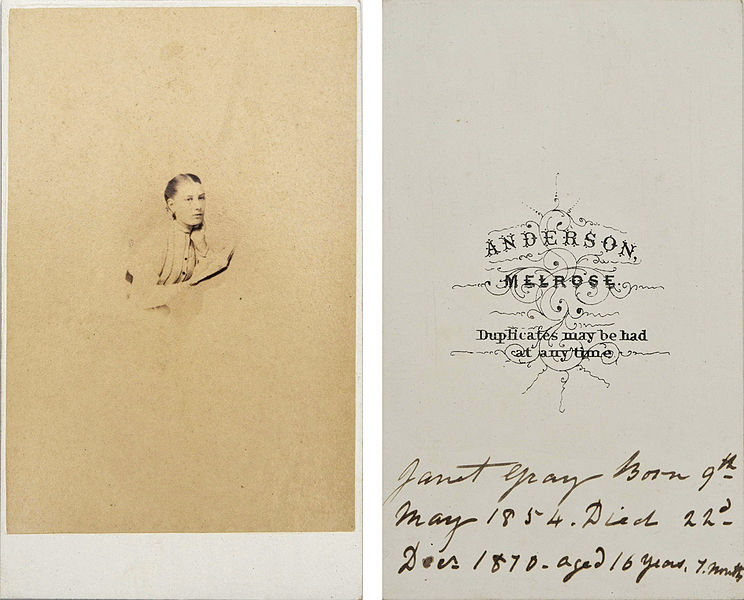 ANDERSON,
MELROSE.
Duplicates may be had
at any time
Janet Gray Born 9th
May 1854. Died 22d
Decr 1870 - aged 16 years, 7. months